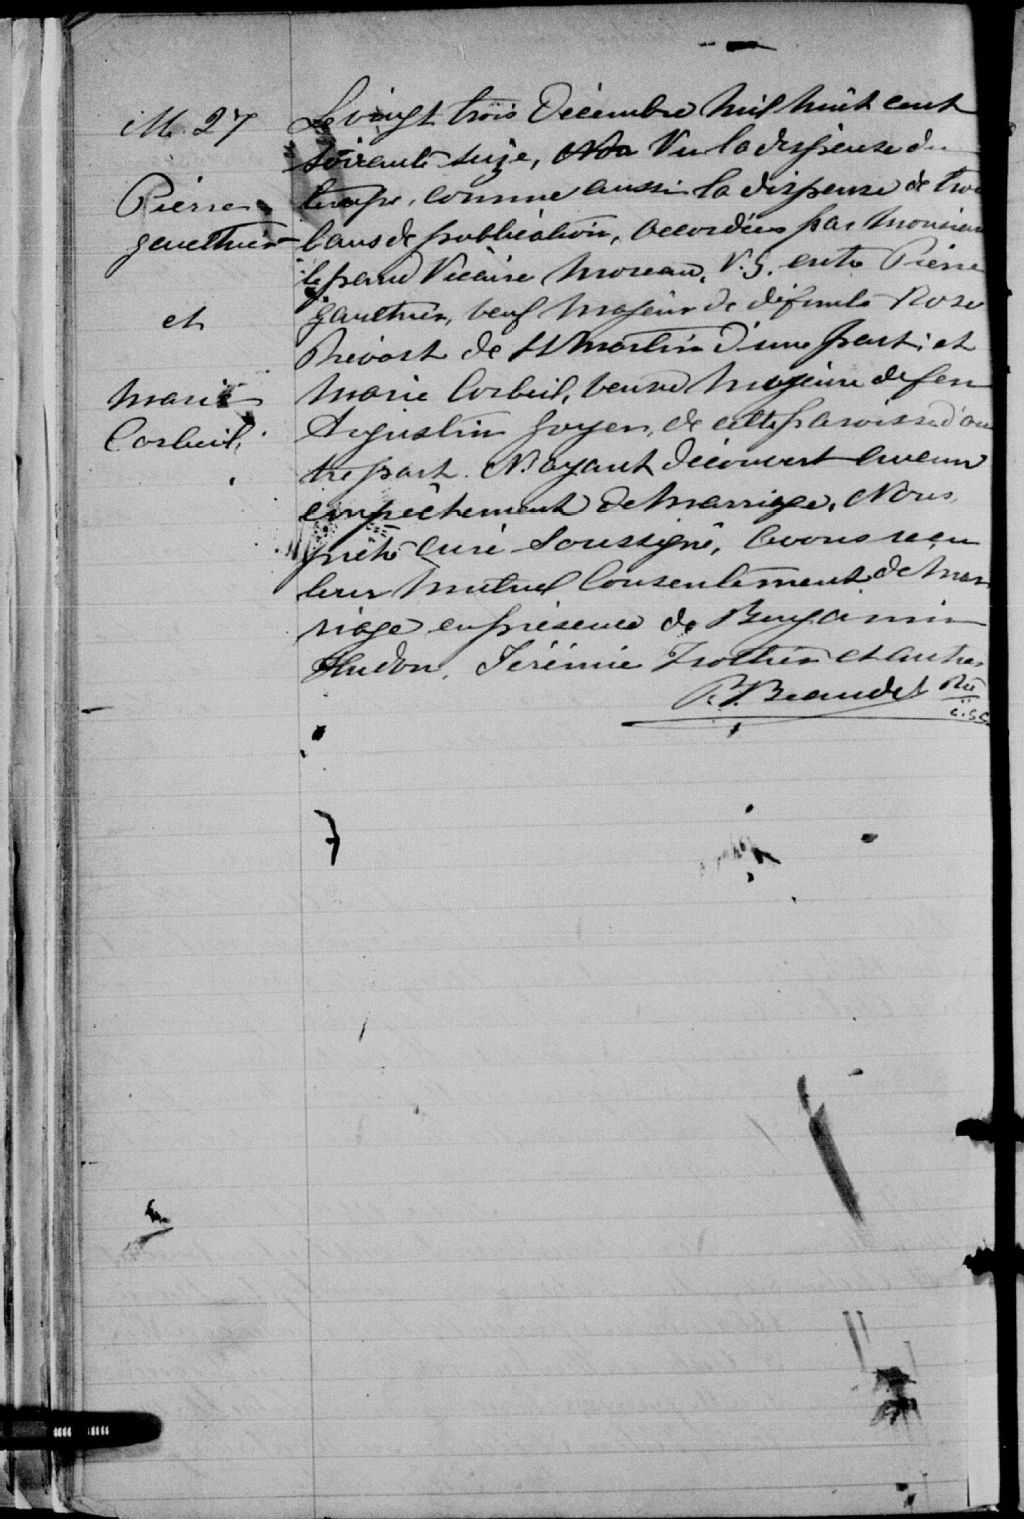 M. 27
Pierre
gauthier
et
Marie
Corbeil.
Le vingt trois Décembre mil huit cent
soixante seize, Vu la dispense du
temps, comme aussi la dispense de troi
bans de publication, accordées par Monsieur
le grand Vicaire Moreau, V.G. entre Pierre
gauthier, veuf majeur de défunte Rose
Prévost de St Martin d'une part; et
Marie Corbeil, veuve majeure de feu
Augustin Goyer, de cette paroisse d'au
tre part. N'ayant découvert aucun
empêchement de marriage, Nous
prêtre Curé Soussigné, avons reçu
leur mutuel Consentement de mar
riage en présence de Benjamin
Hudon, Jérémie Trottier et autres
Beaudet Ptre